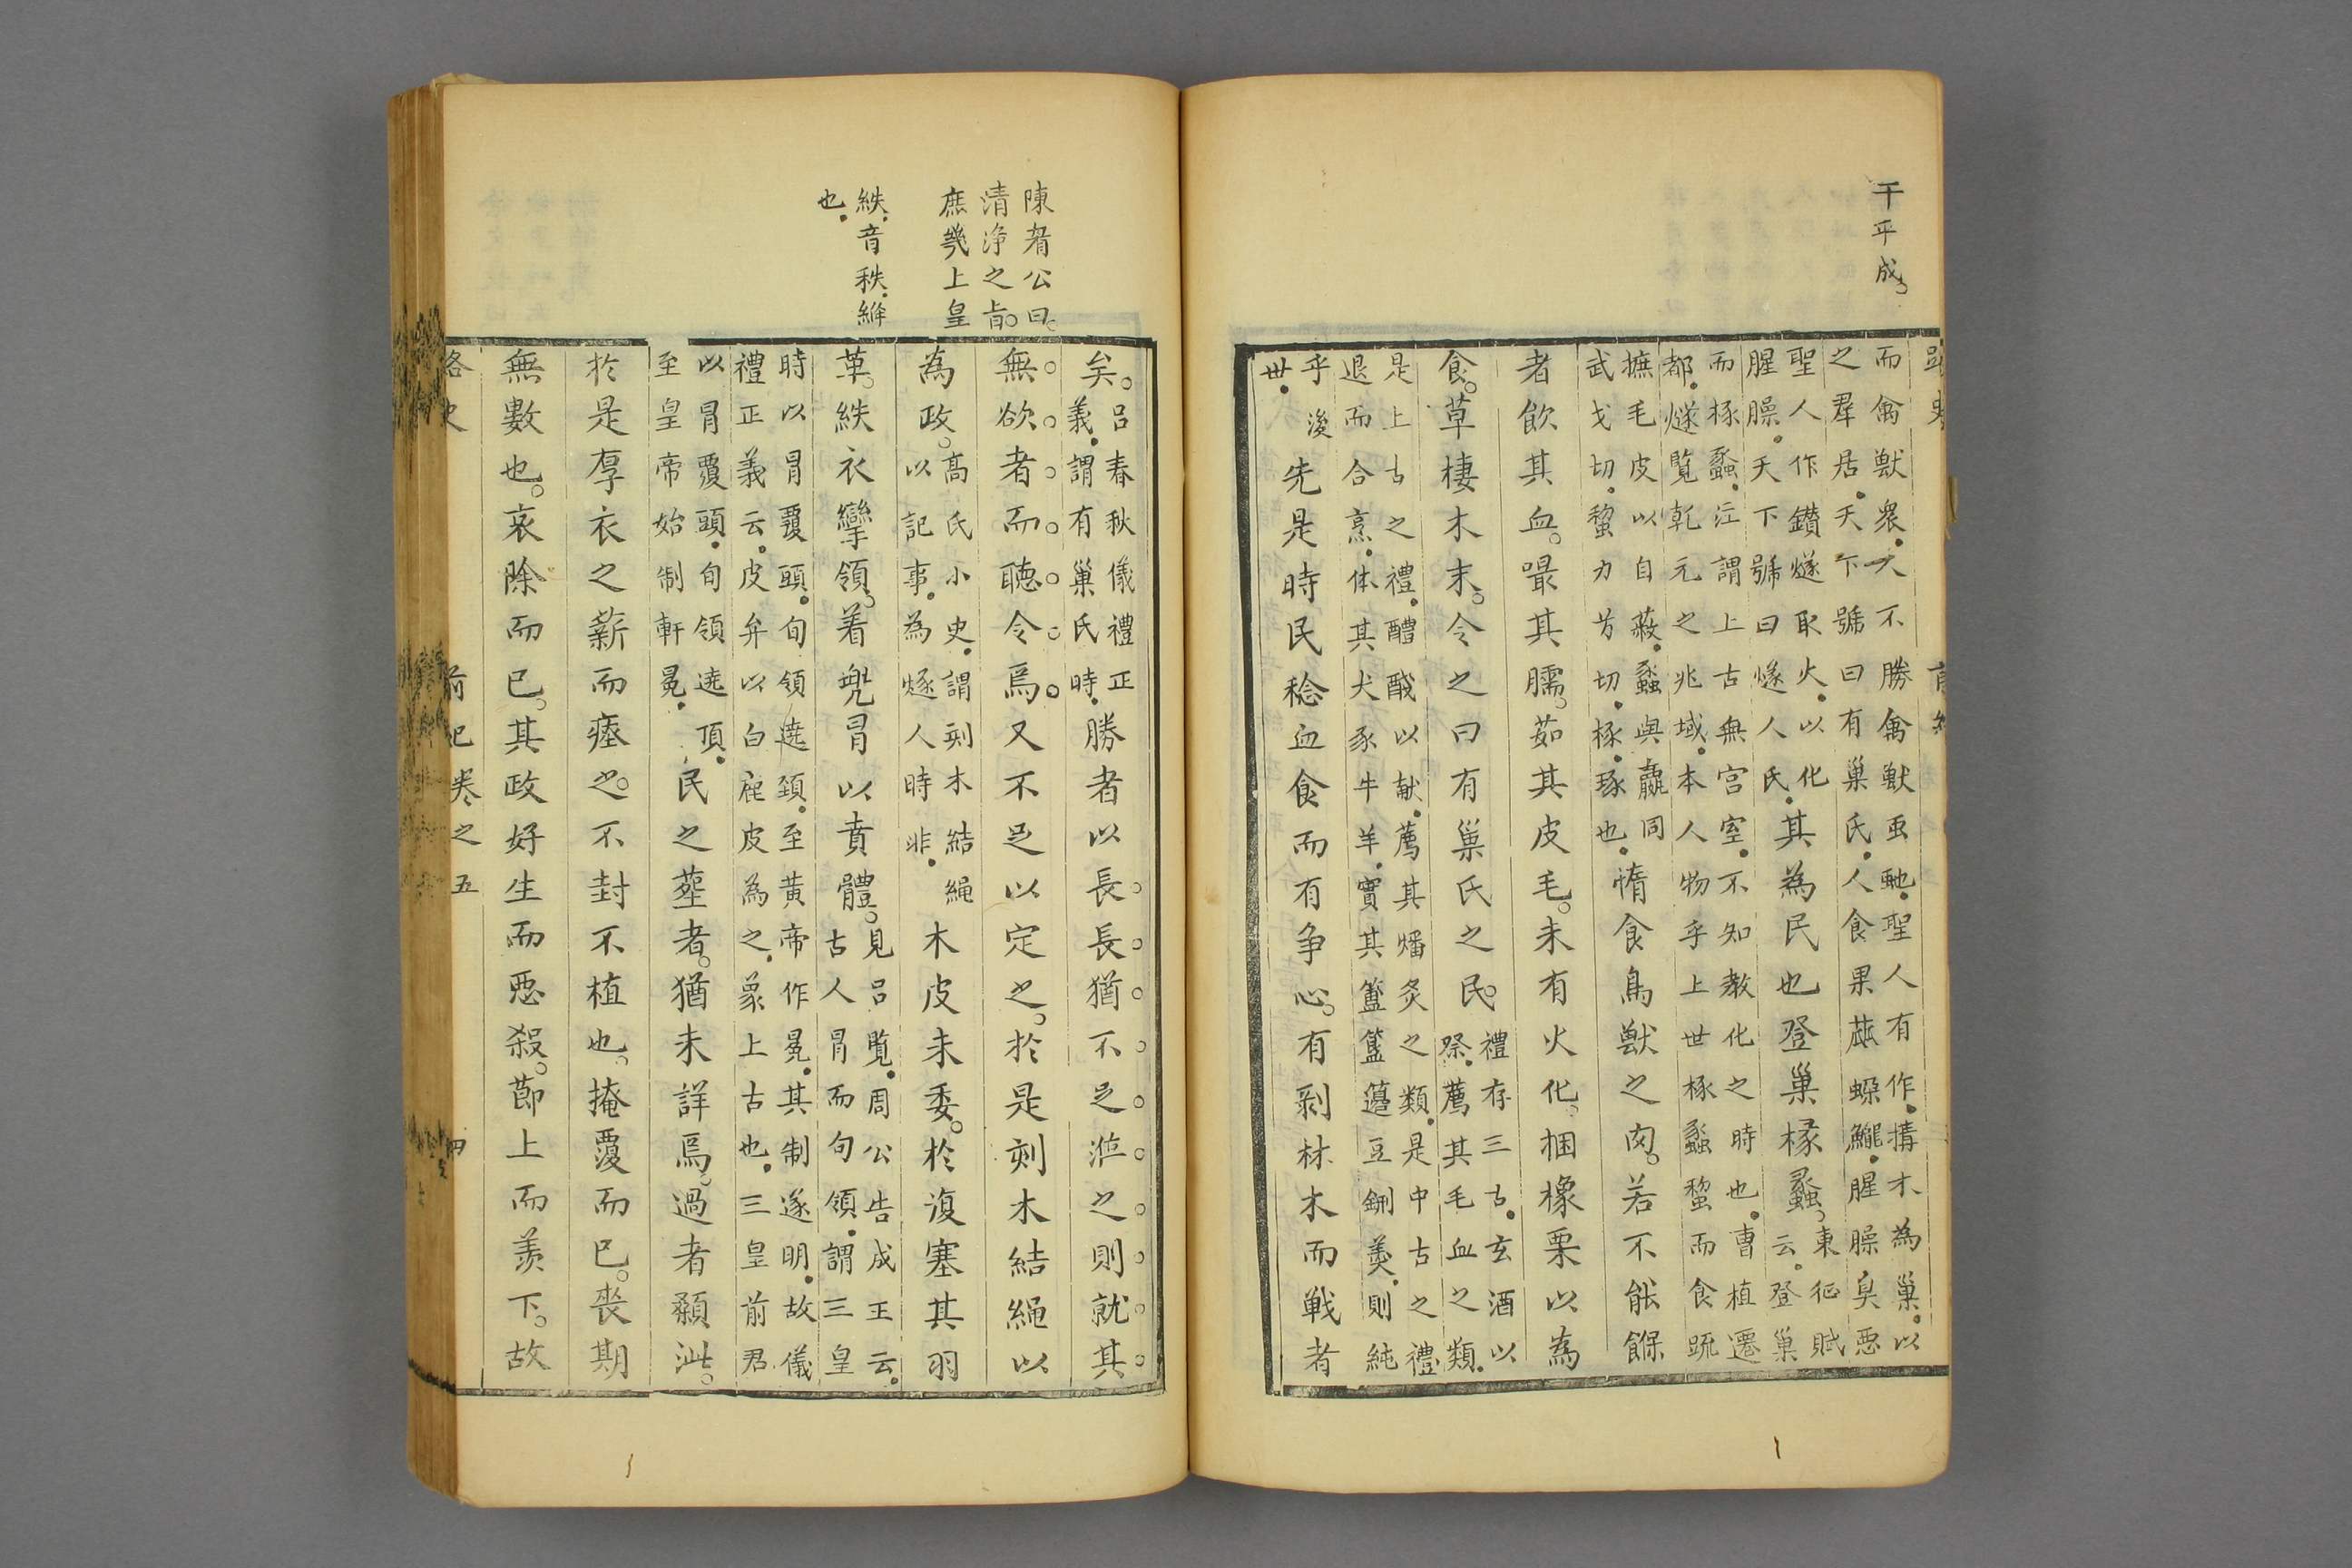 干平成
而禽獸衆人不勝禽獸虫虵聖人有作搆木為巢以
之羣居天下號曰有巢氏人食果蓏蠑鱲腥臊臭惡
聖人作鑽燧取火以化
腥臊天下號曰燧人氏其為民也登巢椓蠡東征賦
云登巢
而椓蠡注謂上古無宮室不知教化之時也曹植遷
都燧覧乾元之兆域本人物乎上世椓蠡蝥而食蔬
摭毛皮以自蔽蠡與蠃同
武戈切蝥力兮切椓琢也惰食鳥獸之肉若不能餱
者飲其血嘬其臑茹其皮毛未有火化梱橡栗以為
食草棲木末令之曰有巢氏之民禮存三古玄酒以
祭薦其毛血之類
是上古之禮醴醆以献薦其燔炙之類是中古之禮
退而合烹体其犬豕牛羊實其簠簋籩豆鉶羮則純
乎後
世先是時民稔血食而有争心有剥林木而戦者
陳眘公曰
清浄之旨
庶幾上皇
紩音秩縫
也
矣呂春秋儀禮正
義謂有巢氏時勝者以長長猶不足涖之則就其
無欲者而聴令焉又不足以定之於是刻木結繩以
為政髙氏小史謂刻木結繩
以記事為燧人時非木皮未委於復塞其羽
革紩衣攣領着兠冐以賁體見呂覧周公告成王云
古人冐而句領謂三皇
時以冐覆頭句領遶頚至黄帝作冕其制遂明故儀
禮正義云皮弁以白鹿皮為之象上古也三皇前君
以冐覆頭句領遶頂
至皇帝始制軒冕民之塟者猶未詳焉過者顙泚
於是厚衣之薪而瘞之不封不植也掩覆而已喪期
無數也哀除而已其政好生而惡殺莭上而羨下故
路史　前纪卷之五　四